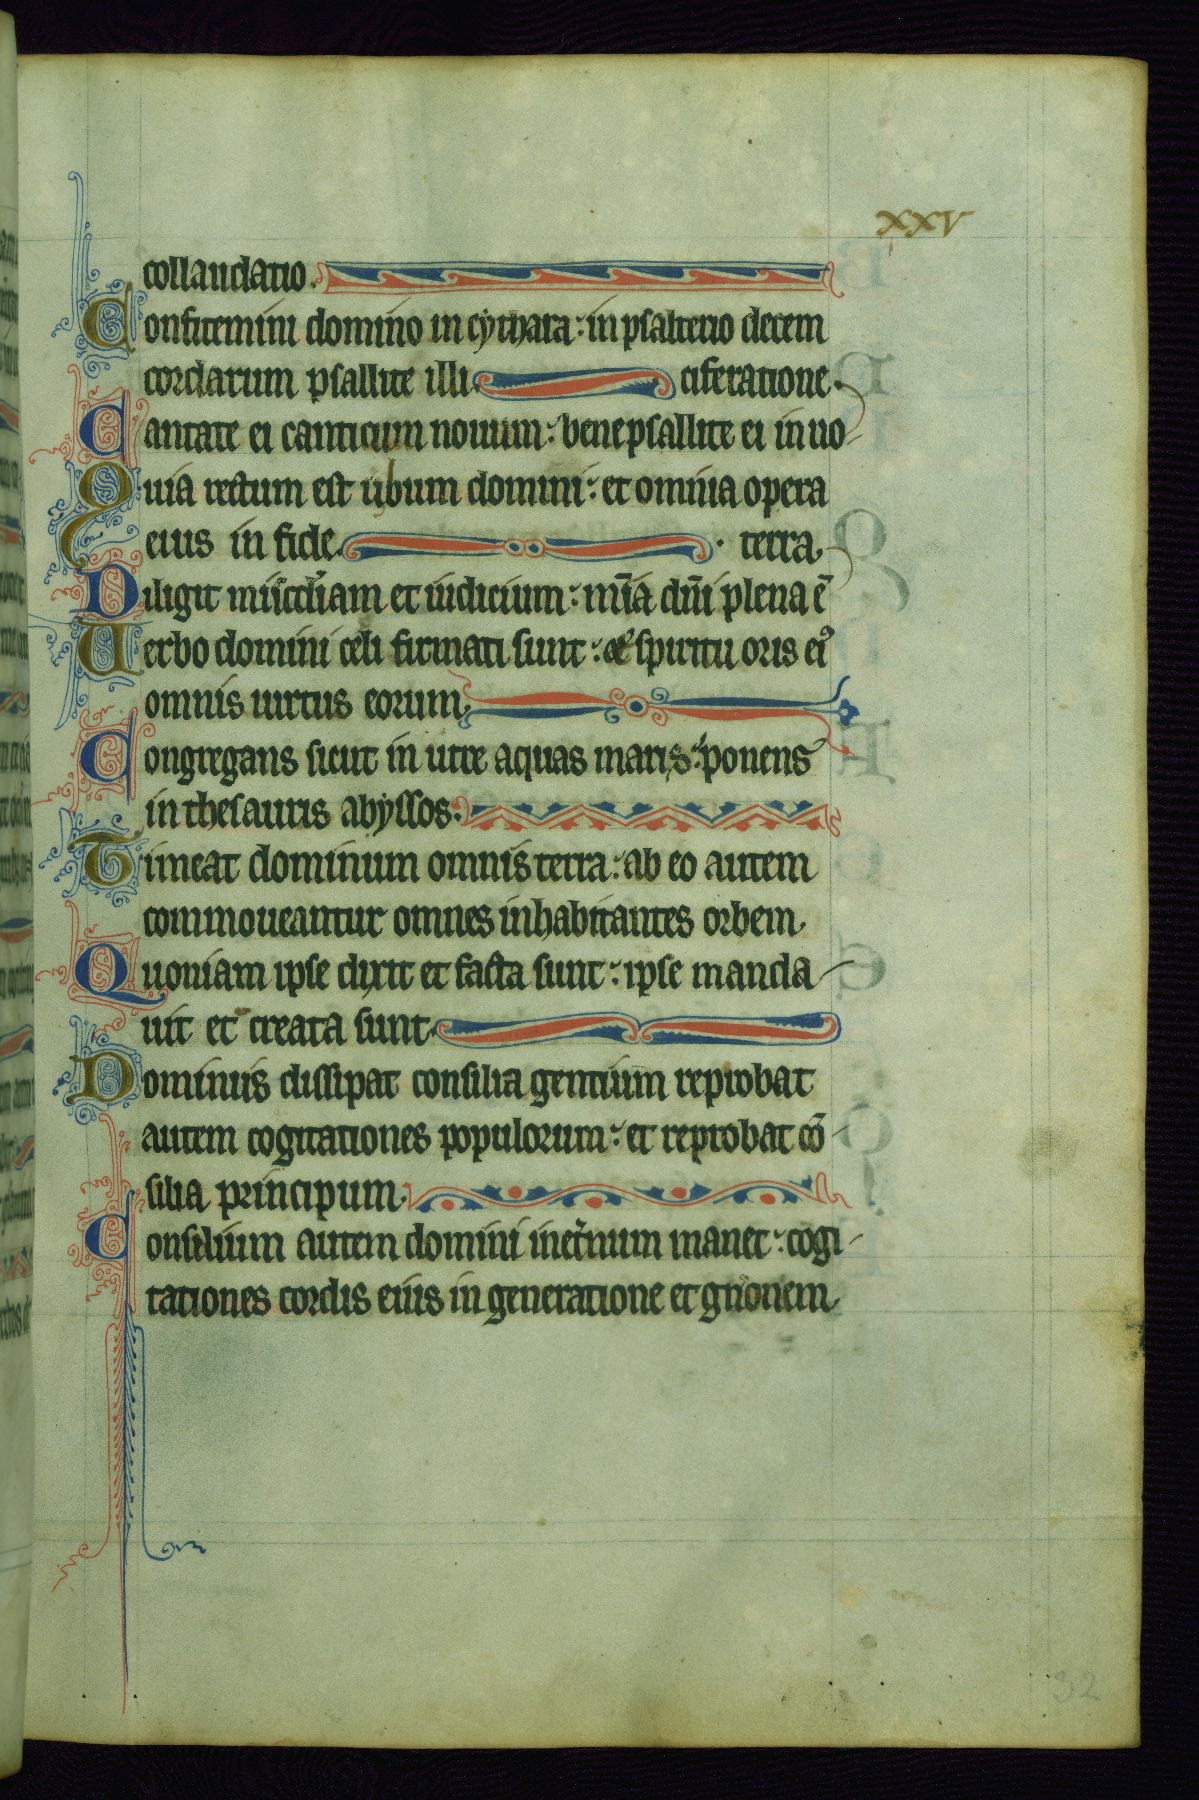 xxv
collaudatio.
Confitemini domino in cythara: in psalterio decem
cordarum psallite illi. ciferatione.
Cantate ei canticum nouum: bene psallite ei in uo
Quia rectum est uerbum domini: et omnia opera
eius in fide. terra.
Diligit miscdiam et iudicium: mīa dnī plena ē
Uerbo domini celi firmati sunt: et spiritu oris eiꝰ
omnis uirtus eorum.
Congregans sicut in utre aquas maris: ponens
in thesauris abyssos:
Timeat dominum omnis terra: ab eo autem
commoueantur omnes inhabitantes orbem.
Quoniam ipse dixit et facta sunt: ipse manda
uit et creata sunt.
Dominus dissipat consilia gentium reprobat
autem cogitationes populorum: et reprobat cō
silia principum.
Consilium autem domini inet̾num manet: cogi
tationes cordis eius in generatione et gn̄onem.
32